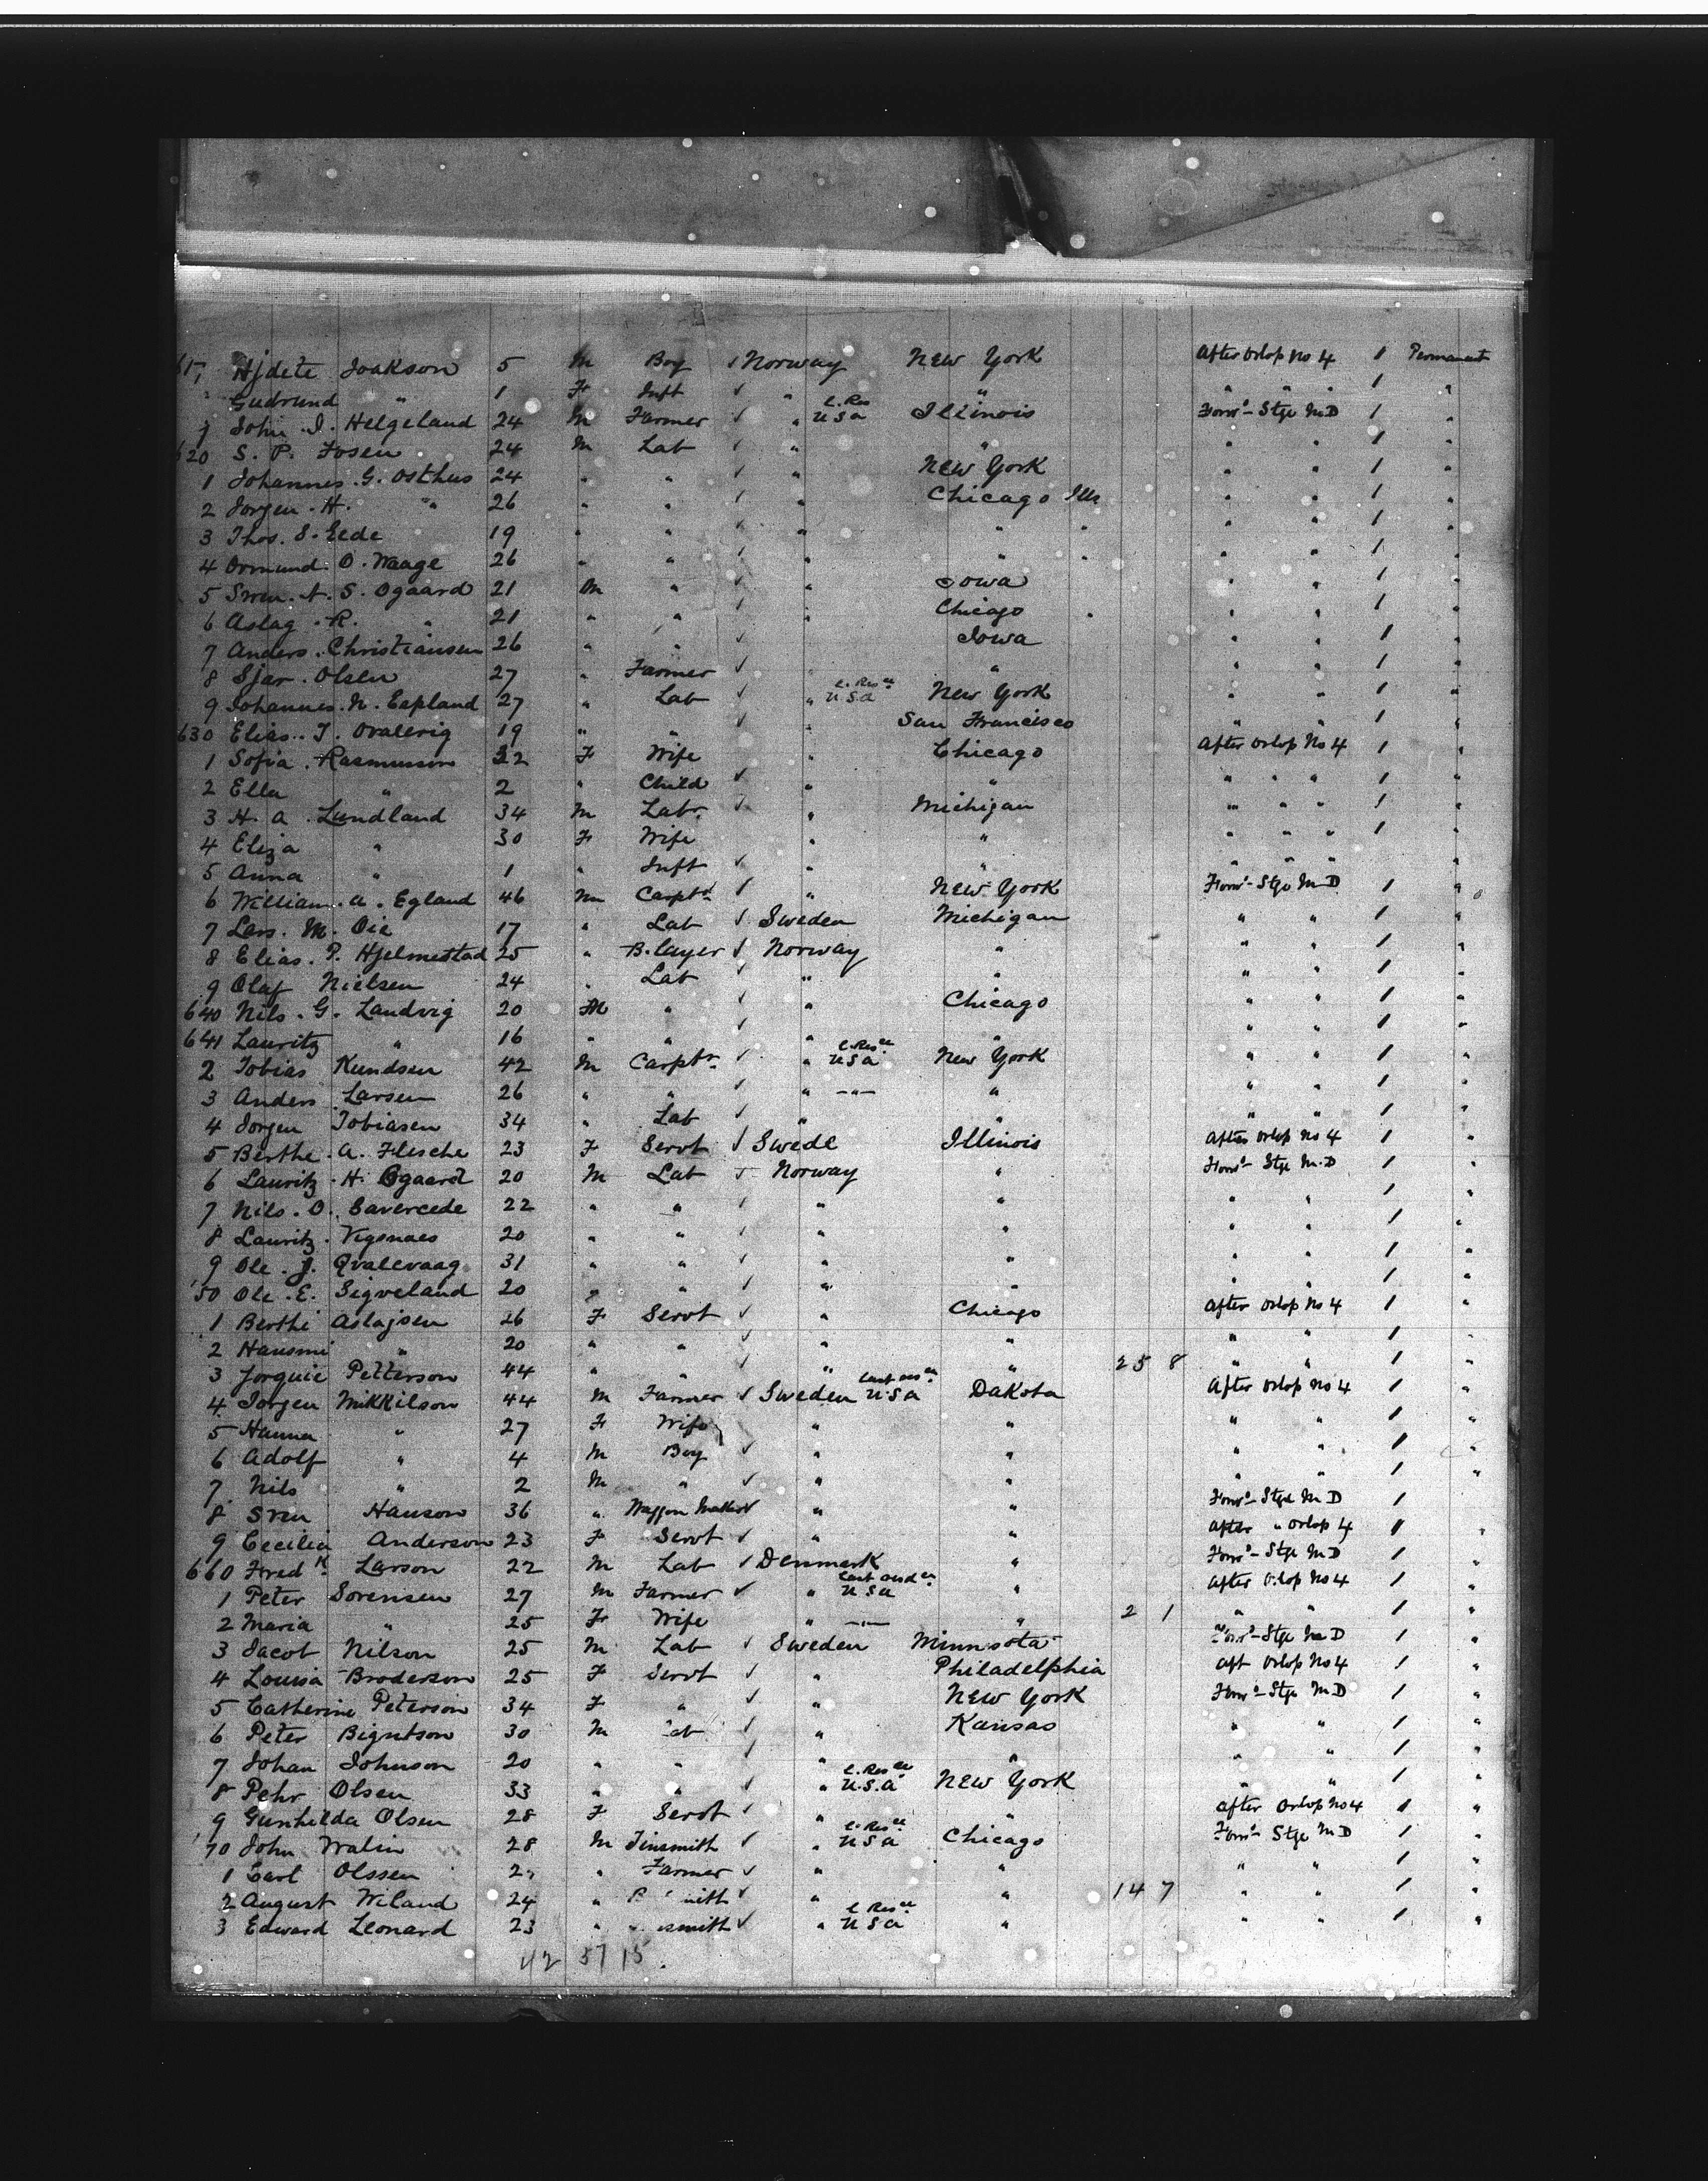 617 Hjdete Joakson 5 M Boy ✓ Norway New York After Orlop No 4 1 Permanent
" Gudrund " 1 F Inft ✓ " " " " " 1 "
9 John I. Helgeland 24 M Farmer ✓ " L. Res USA Illinois Forwd Stge M D 1 "
620 S. P. Fosen 24 M Lab ✓ " " " " 1 "
1 Johannes G. Osthus 24 " " ✓ " New York " " 1 "
2 Jorgen H. " 26 " " ✓ " Chicago Ills " " 1 "
3 Thos. S. Eede 19 " " ✓ " " " " " 1 "
4 Ormund O. Waage 26 " " ✓ " " " " " 1 "
5 N. S. Ogaard 21 M " ✓ " Iowa " " 1 "
6 Aslag R. " 21 " " ✓ " Chicago " " 1 "
7 Anders Christiansen 26 " " ✓ " Iowa " " 1 "
8 Sjar Olsen 27 " Farmer ✓ " " " " 1 "
9 Johannes N. Eapland 27 " Lab ✓ " L. Resce USA New York " " 1 "
630 Elias T. Ovalevig 19 " " ✓ " San Francisco " " 1 "
1 Sofia Rasmusson 32 F Wife " Chicago After Orlop No 4 1 "
2 Ella " 2 " Child ✓ " " " " " 1 "
3 H. A. Lundland 34 M Labr ✓ " Michigan " " " 1 "
4 Eliza " 30 F Wife " " " " " 1 "
5 Anna " 1 " Inft ✓ " " " " " "
6 William A. Egland 46 M Carptr ✓ " New York Forwd Stge M D 1 "
7 Lars M. Oie 17 " Lab ✓ Sweden Michigan " " 1 "
8 Elias P. Hjelmestad 25 " B. layer ✓ Norway " " " 1 "
9 Olaf Nielsen 24 " Lab ✓ " " " " 1 "
640 Nils G. Landvig 20 M " ✓ " Chicago " " 1 "
641 Lauritz " 16 " " ✓ " " " " 1 "
2 Tobias Kundsen 42 M Carptr ✓ " L. Resce USA New York " " 1 "
3 Anders Larsen 26 " " ✓ " —"— " " " 1 "
4 Jorgen Tobiasen 34 " Lab ✓ " " " " 1 "
5 Berthe A. Flesche 23 F Servt ✓ Swede Illinois After Orlop No 4 1 "
6 Lauritz H. Ogaard 20 M Lab ✓ Norway " Forwd Stge M.D 1 "
7 Nils O. Eavercede 22 " " ✓ " " " " 1 "
8 Lauritz Vigsnaes 20 " " ✓ " " " " 1 "
9 Ole J. Qvalevaag 31 " " ✓ " " " " 1 "
50 Ole E. Sigveland 20 " " ✓ " " " " 1 "
1 Berthe Aslajsen 26 F Servt ✓ " Chicago After Orlop No 4 1 "
2 Hansmi " 20 " " ✓ " " " " 1 "
3 Jorguie Petterson 44 " " ✓ " " 25 8 " " 1 "
4 Jorgen Mikkilson 44 M Farmer ✓ Sweden Last resce USA Dakota After Orlop No 4 1 "
5 Hanna " 27 F Wife " " " " 1 "
6 Adolf " 4 M Boy ✓ " " " " 1 "
7 Nils " 2 M " ✓ " " " " 1 "
8 Sven Hanson 36 " Waggon Maker ✓ " " Forwd Stge M D 1
9 Cecilia Anderson 23 F Servt ✓ " " After " Orlop 4 1 "
660 Fredk Larson 22 M Lab ✓ Denmark " Forwd Stge M D 1 "
1 Peter Sorensen 27 M Farmer ✓ " USA " After Orlop No 4 1 "
2 Maria " 25 F Wife " —"— " 2 1 " " 1 "
3 Jacob Nilson 25 M Lab ✓ Sweden Minnsota Forwd Stge M D 1 "
4 Louisa Broderson 25 F Servt ✓ " Philadelphia Aft Orlop No 4 1 "
5 Catherine Peterson 34 F " ✓ " New York Forwd Stge M D 1 "
6 Peter Bigntson 30 M Lab ✓ " Kansas " " 1 "
7 Johan Johnson 20 " " ✓ " " " " 1 "
8 Pehr Olsen 33 " " ✓ " L. Resce U.S.A New York " " 1 "
9 Gunhilda Olsen 28 F Servt ✓ " " After Orlop No 4 1 "
70 John Walin 28 M Tinsmith ✓ " L. Resce USA Chicago Forwd Stge M D 1 "
1 Carl Olssen " Farmer ✓ " " " " 1 "
2 August Wiland 24 " ✓ " " 14 7 " " 1 "
3 Edward Leonard 23 " ✓ " L Resce USA " " " 1 "
42 57 15